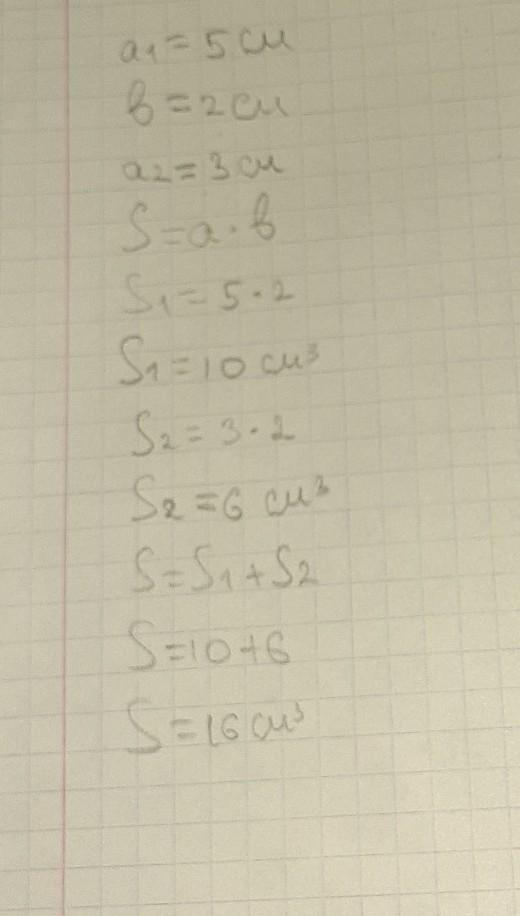 a₁=5 см
в=2 см
a₂=3 см
S=a·в
S₁=5·2
S₁=10 см³
S₂=3·2
S₂=6 см³
S=S₁+S₂
S=10+6
S=16 см³